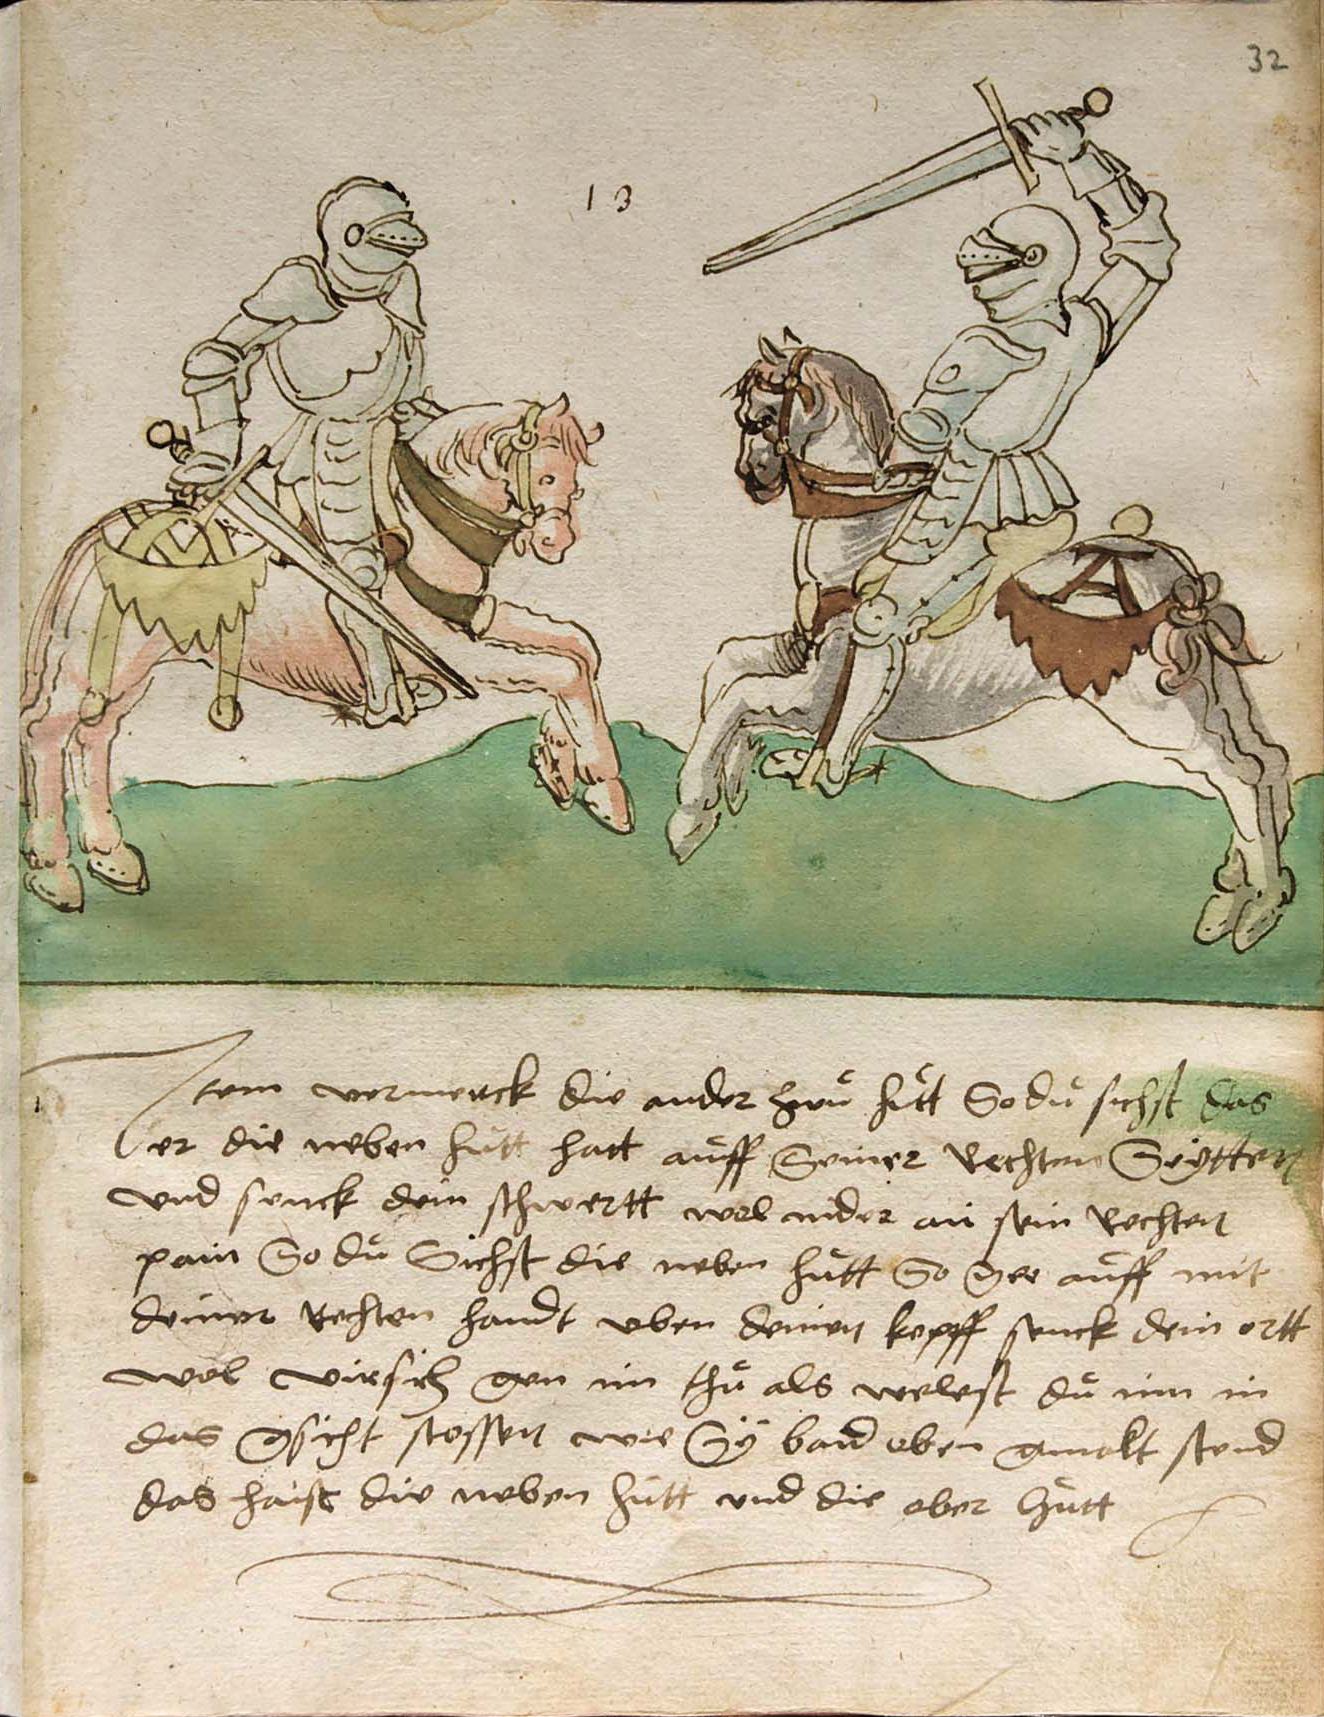 32
13
Item vermerck die ander zwu hůtt So du sichst das
er die neben hůtt hatt auff Seiner Rechten Seytten
vnd senck dein schwertt wol nider an sein Rechten
pain So du Sichst die neben hůtt So gee auff mit
deiner Rechten handt oben deinen kopff senck dein ortt
wol virsich gen im thů als welest du im in
das gsicht stossen wie Sÿ baid oben gmalt stend
das haist die neben hůtt vnd die ober hůtt